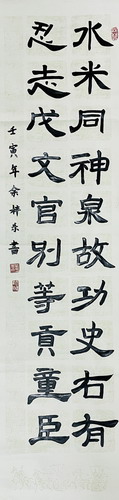 水米同神泉故功史右有
忍志戊文官别等貢童臣
壬寅年余耕禾書